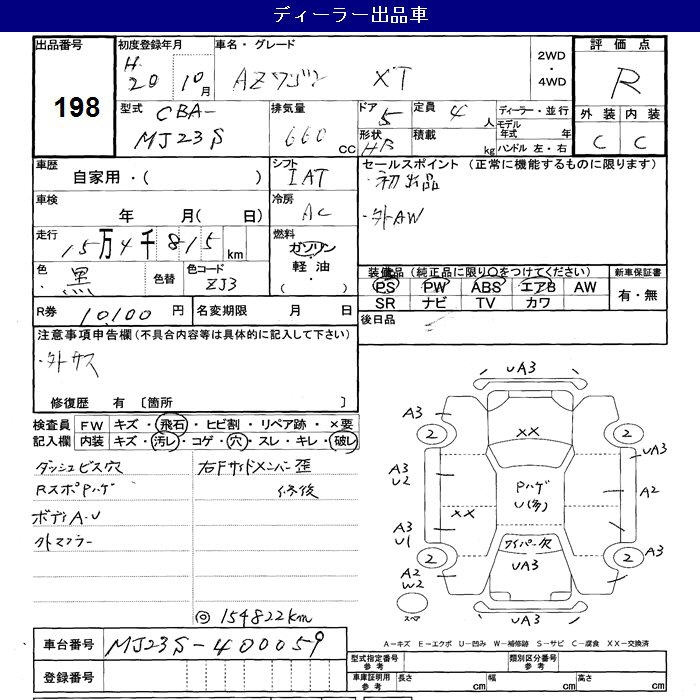 ディーラー出品車
出品番号
198
初度登録年月
H.20 10月
車名・グレード
AZワゴン XT
2WD
・
4WD
評価点
R
型式
CBA-
MJ23S
排気量
660 cc
ドア
5
定員
4人
ディーラー・並行
モデル年式 年
形状
HB
積載 kg
ハンドル 左・右
外装 内装
C C
車歴
自家用・( )
シフト
IAT
セールスポイント (正常に機能するものに限ります)
・初出品
・外AW
車検
年 月( 日)
冷房
AC
走行
15万4千815km
燃料
ガソリン
・
軽油
・
( )
色
黒
色替
色コード
ZJ3
装備品(純正品に限り○をつけてください)
新車保証書
PS PW ABS エアB AW
有・無
SR ナビ TV カワ
R券 10,100円
名変期限 月 日
後日品
注意事項申告欄(不具合内容等は具体的に記入して下さい)
・外サス
修復歴 有 〔箇所 〕
検査員記入欄
FW キズ・飛石・ヒビ割・リペア跡・×要
内装 キズ・汚レ・コゲ・穴・スレ・キレ・破レ
ダッシュビス穴
右Fサイドメンバー歪
RスポPハゲ
修後
ボディA・U
外マフラー
◎154822km
UA3
A3
2
XX
2
UA3
A3
U2
Pハゲ
U(多)
A2
A3
U1
XX
ワイパー欠
2
UA3
2
A3
A2
W2
スペア
UA3
A=キズ E=エクボ U=凹み W=補修跡 S=サビ C=腐食 XX=交換済
車台番号 MJ23S-400059
登録番号
型式指定番号
参考
類別区分番号
参考
車庫証明用
参考
長さ cm
幅 cm
高さ cm